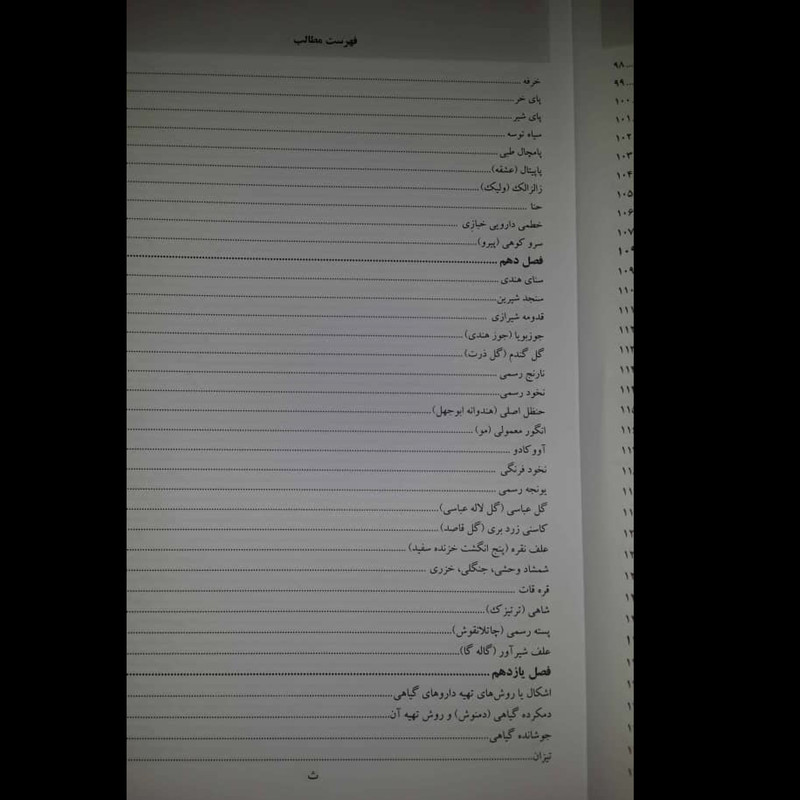 فهرست مطالب
خرفه
پای خر
پای شیر
سیاه توسه
پامچال طبی
پاپیتال (عشقه)
زالزالک (ولیک)
حنا
خطمی دارویی خبازی
سرو کوهی (پیرو)
فصل دهم
سنای هندی
سنجد شیرین
قدومه شیرازی
جوزبویا (جوز هندی)
گل گندم (گل ذرت)
نارنج رسمی
نخود رسمی
حنظل اصلی (هندوانه ابوجهل)
انگور معمولی (مو)
آووکادو
نخود فرنگی
یونجه رسمی
گل عباسی (گل لاله عباسی)
کاسنی زرد بری (گل قاصد)
علف نقره (پنج انگشت خزنده سفید)
شمشاد وحشی، جنگلی، خزری
قره قات
شاهی (ترتیزک)
پسته رسمی (چاتلانقوش)
علف شیرآور (گاله گا)
فصل یازدهم
اشکال یا روش‌های تهیه داروهای گیاهی
دمکرده گیاهی (دمنوش) و روش تهیه آن
جوشانده گیاهی
تیزان
ث
۹۸
۹۹
۱۰۰
۱۰۱
۱۰۲
۱۰۳
۱۰۴
۱۰۵
۱۰۶
۱۰۷